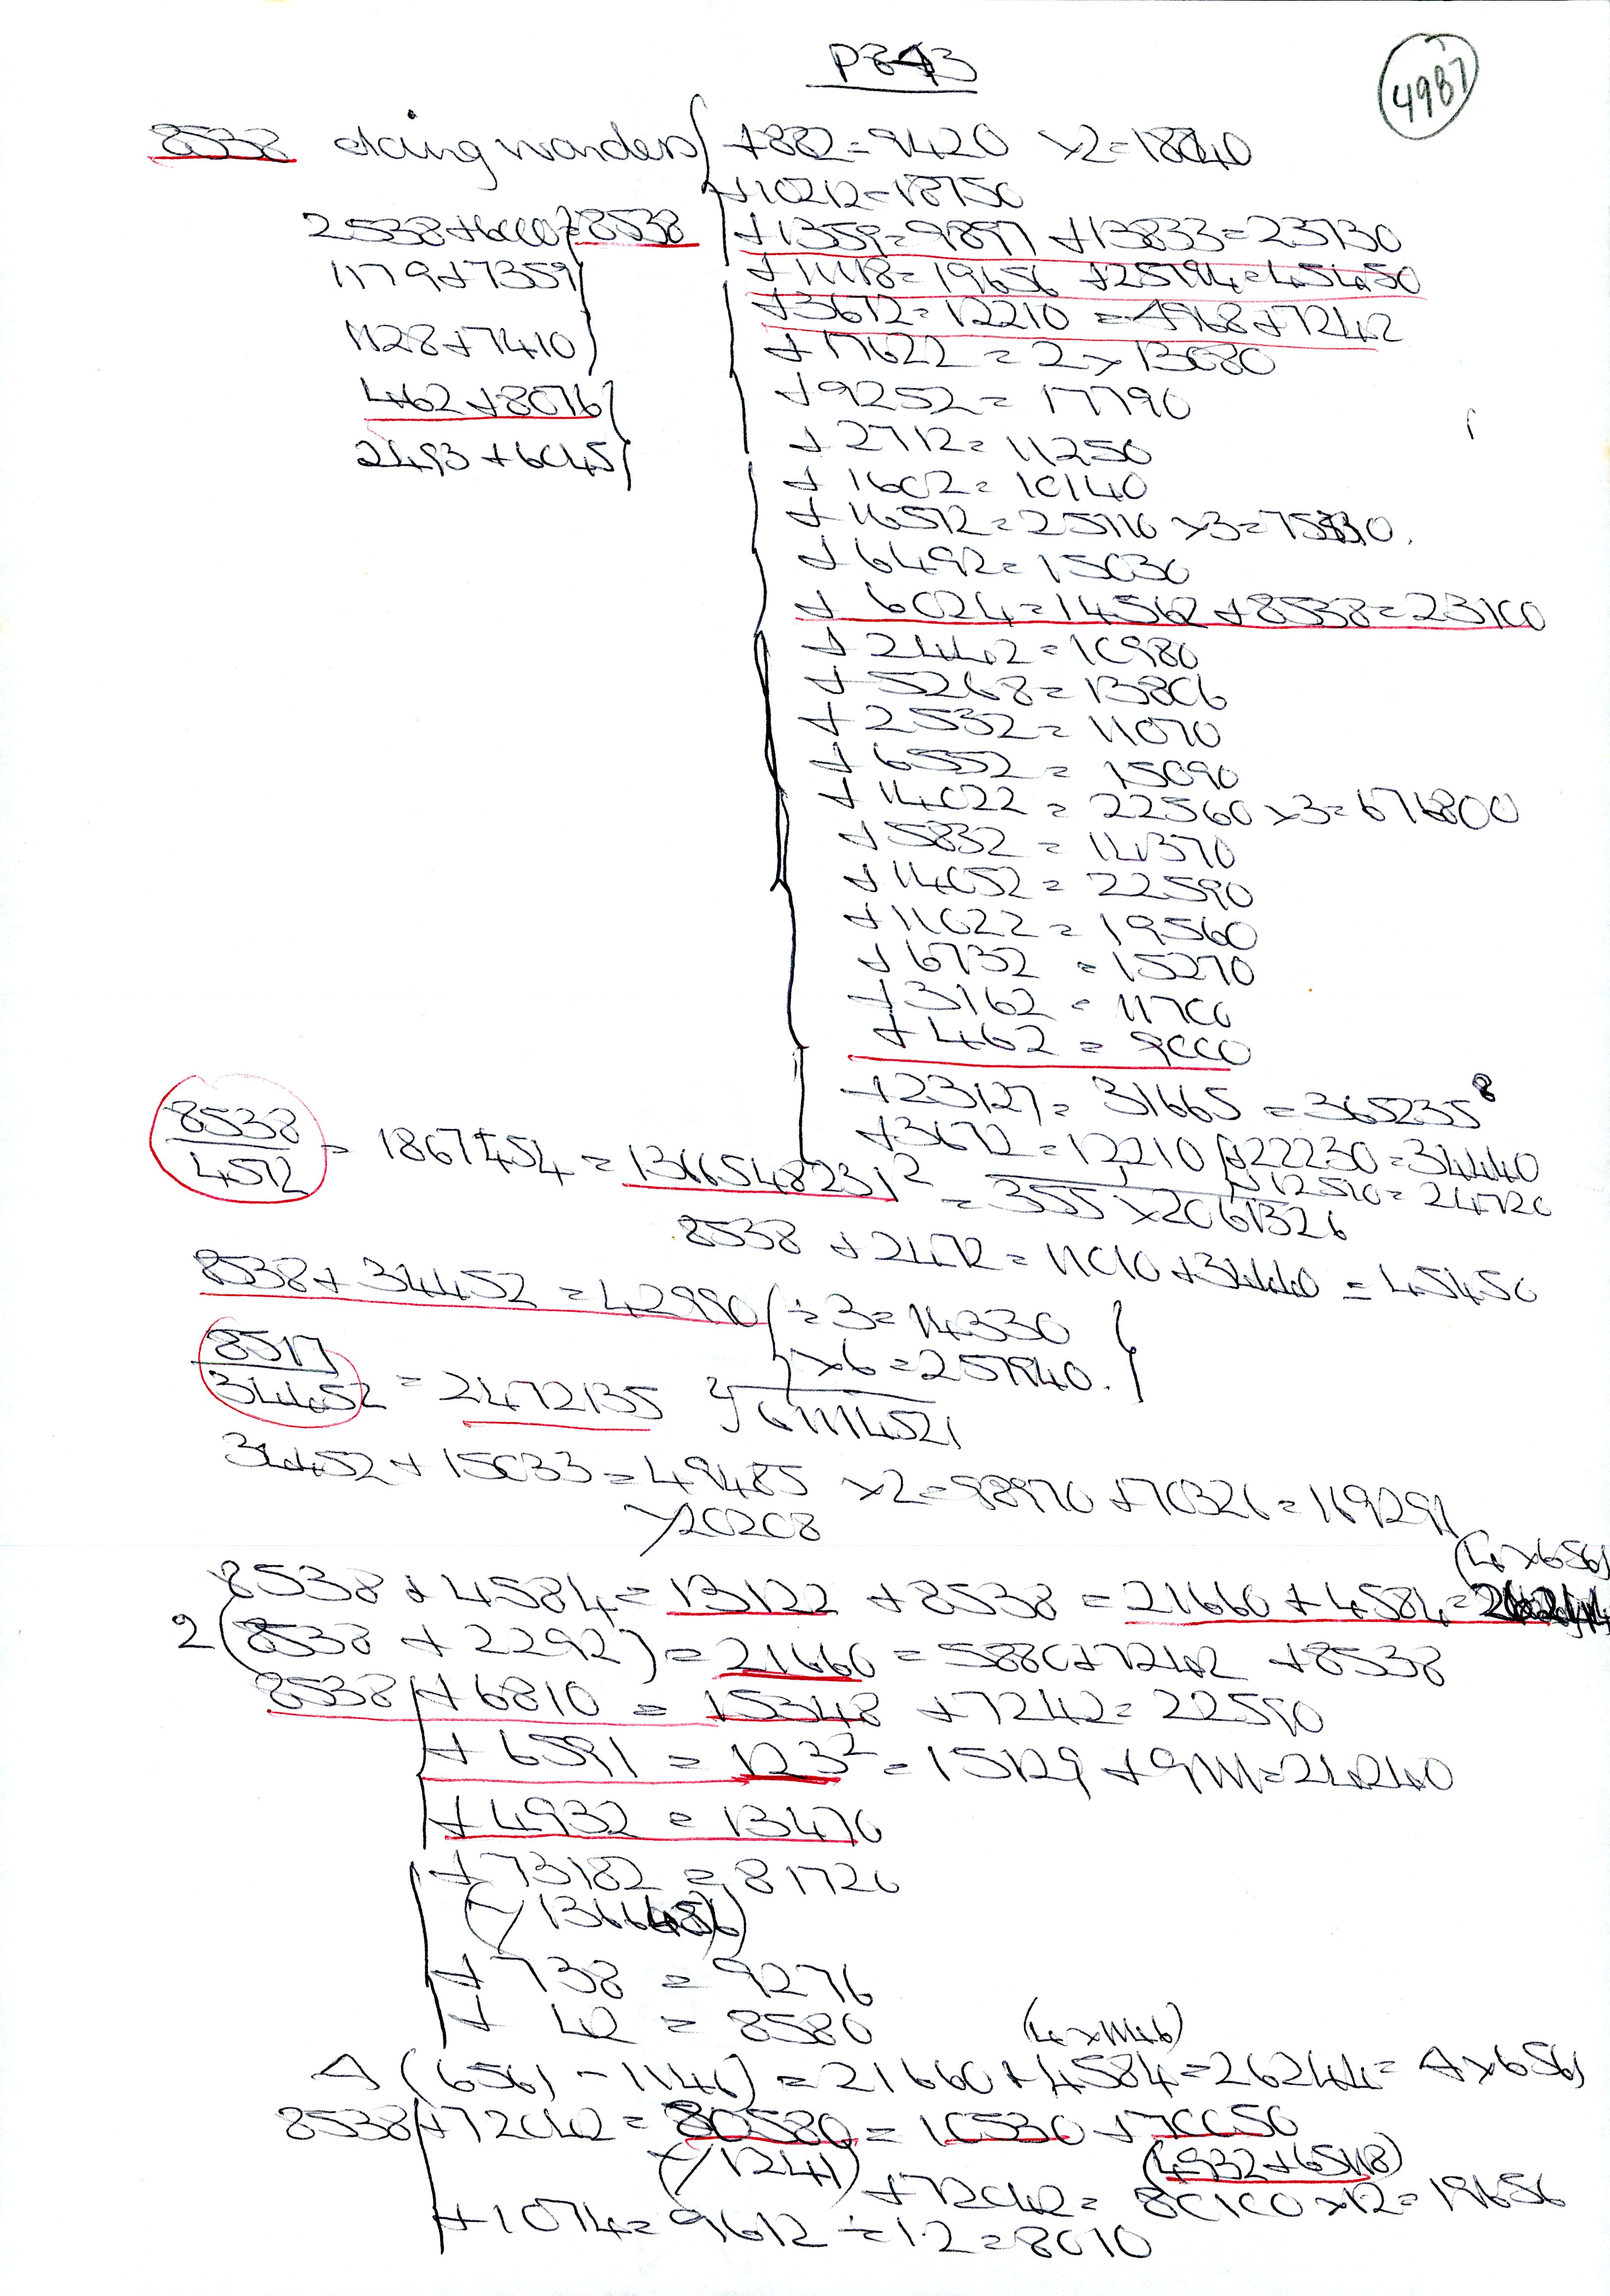 P843
4987
8538 doing wonders +882=9420 ×2=18840
+10212=18750
2538+6000=8538 +1359=9897 +13833=23730
1179+7359 +11118=19656 +25794=45450
+3672=12210 =4968+7242
1128+7410 +17622=2×13080
462+8076 +9252=17790
2493+6045 +2712=11250
+1602=10140
+16572=25110 ×3=75330.
+6492=15030
+6024=14562+8538=23100
+2442=10980
+5268=13806
+2532=11070
+6552=15090
+14022=22560×3=67680
+5832=14370
+14052=22590
+11022=19560
+6732=15270
+3162=11700
+462=9000
+23127=31665=365235⁸
+3672=12210 +22230=34440
+12510=24720
8538
4572 = 1867454=1366548231² = 355×2061326
8538+2472=11010+34440=45450
8538+34452=42990 ÷3=14330
×6=257940.
8517
34452 = 2472135 √61114521
34452+15033=49485 ×2=98970+70326=169291
×20208
(4×6561)
8538+4584=13122+8538=21660+4584=26244
2(8538+2292)=21660=5880+7242+8538
8538+6810=15348+7242=22590
+6591=123²=15129+9111=24240
+4932=13470
+73182=81720
+738=9276
+42=8580
(4×1146)
4(6561-1146)=21660+4584=26244=4×6561
8538+72042=80580=10530+70050
(/1241)
(4932+65118)
+72042=
+1074=9612÷1.2=8010